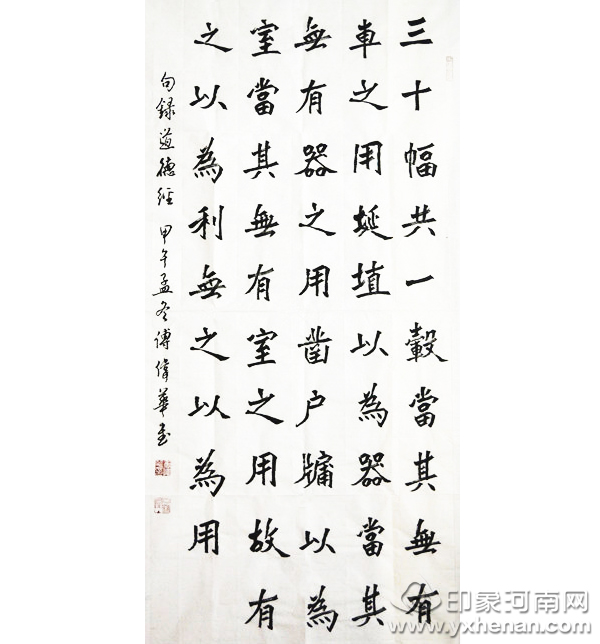 三十幅共一轂當其無有
車之用埏埴以為器當其
無有器之用凿户牖以為
室當其無有室之用故有
之以為利無之以為用
句録道德經 甲午孟冬傅偉華書
印象河南网
www.yxhenan.com